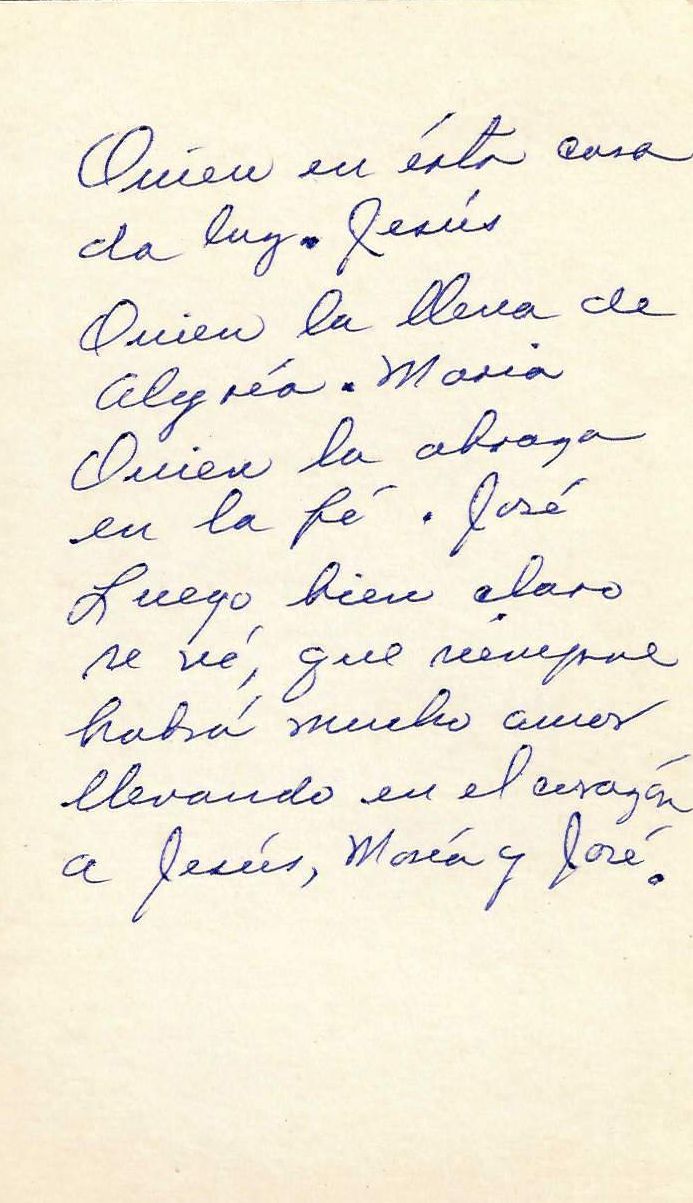 Quien en ésta casa
da luz. Jesús
Quien la llena de
alegría. Maria
Quien la abraza
en la fé. José
Luego bien claro
se vé, que siempre
habrá mucho amor
llevando en el corazón
a Jesús, María y José.